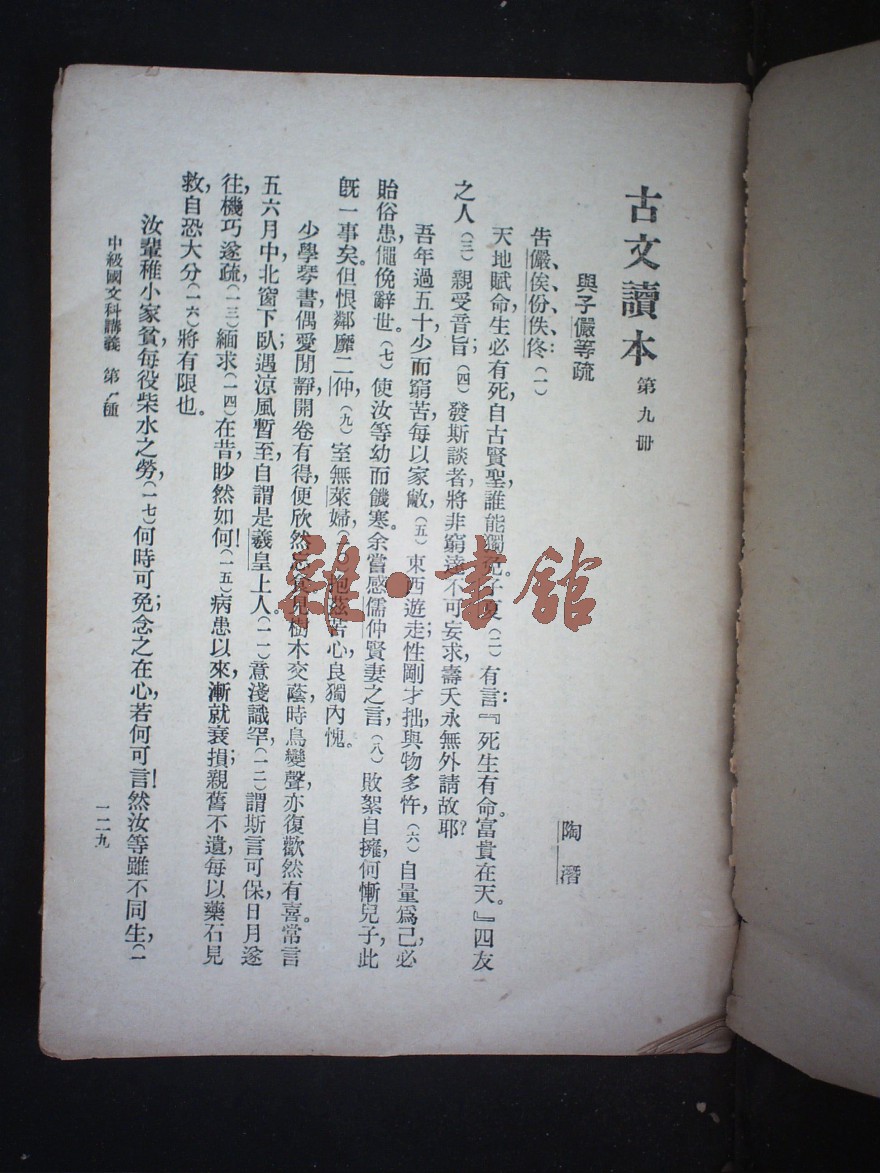 古文讀本 第九册
與子儼等疏
陶潛
告儼、俟、份、佚、佟：（一）
天地賦命，生必有死，自古賢聖，誰能獨免。子夏（二）有言：『死生有命，富貴在天。』四友
之人，（三）親受音旨；（四）發斯談者，將非窮達不可妄求，壽夭永無外請故耶？
吾年過五十，少而窮苦，每以家敝，（五）東西遊走；性剛才拙，與物多忤，（六）自量爲己，必
貽俗患，僶俛辭世。（七）使汝等幼而饑寒。余嘗感儒仲賢妻之言，（八）敗絮自擁，何慚兒子，此
旣一事矣。但恨鄰靡二仲，（九）室無萊婦，抱茲苦心，良獨內愧。
少學琴書，偶愛閒靜，開卷有得，便欣然忘食；見樹木交蔭，時鳥變聲，亦復歡然有喜。常言
五六月中，北窗下臥，遇涼風暫至，自謂是羲皇上人。（一一）意淺識罕，（一二）謂斯言可保，日月遂
往，機巧遂疏，（一三）緬求（一四）在昔，眇然如何！（一五）病患以來，漸就衰損；親舊不遺，每以藥石見
救，自恐大分（一六）將有限也。
汝輩稚小家貧，每役柴水之勞，（一七）何時可免；念之在心，若何可言！然汝等雖不同生，（一
中級國文科講義 第 種
一二九
雜·書館